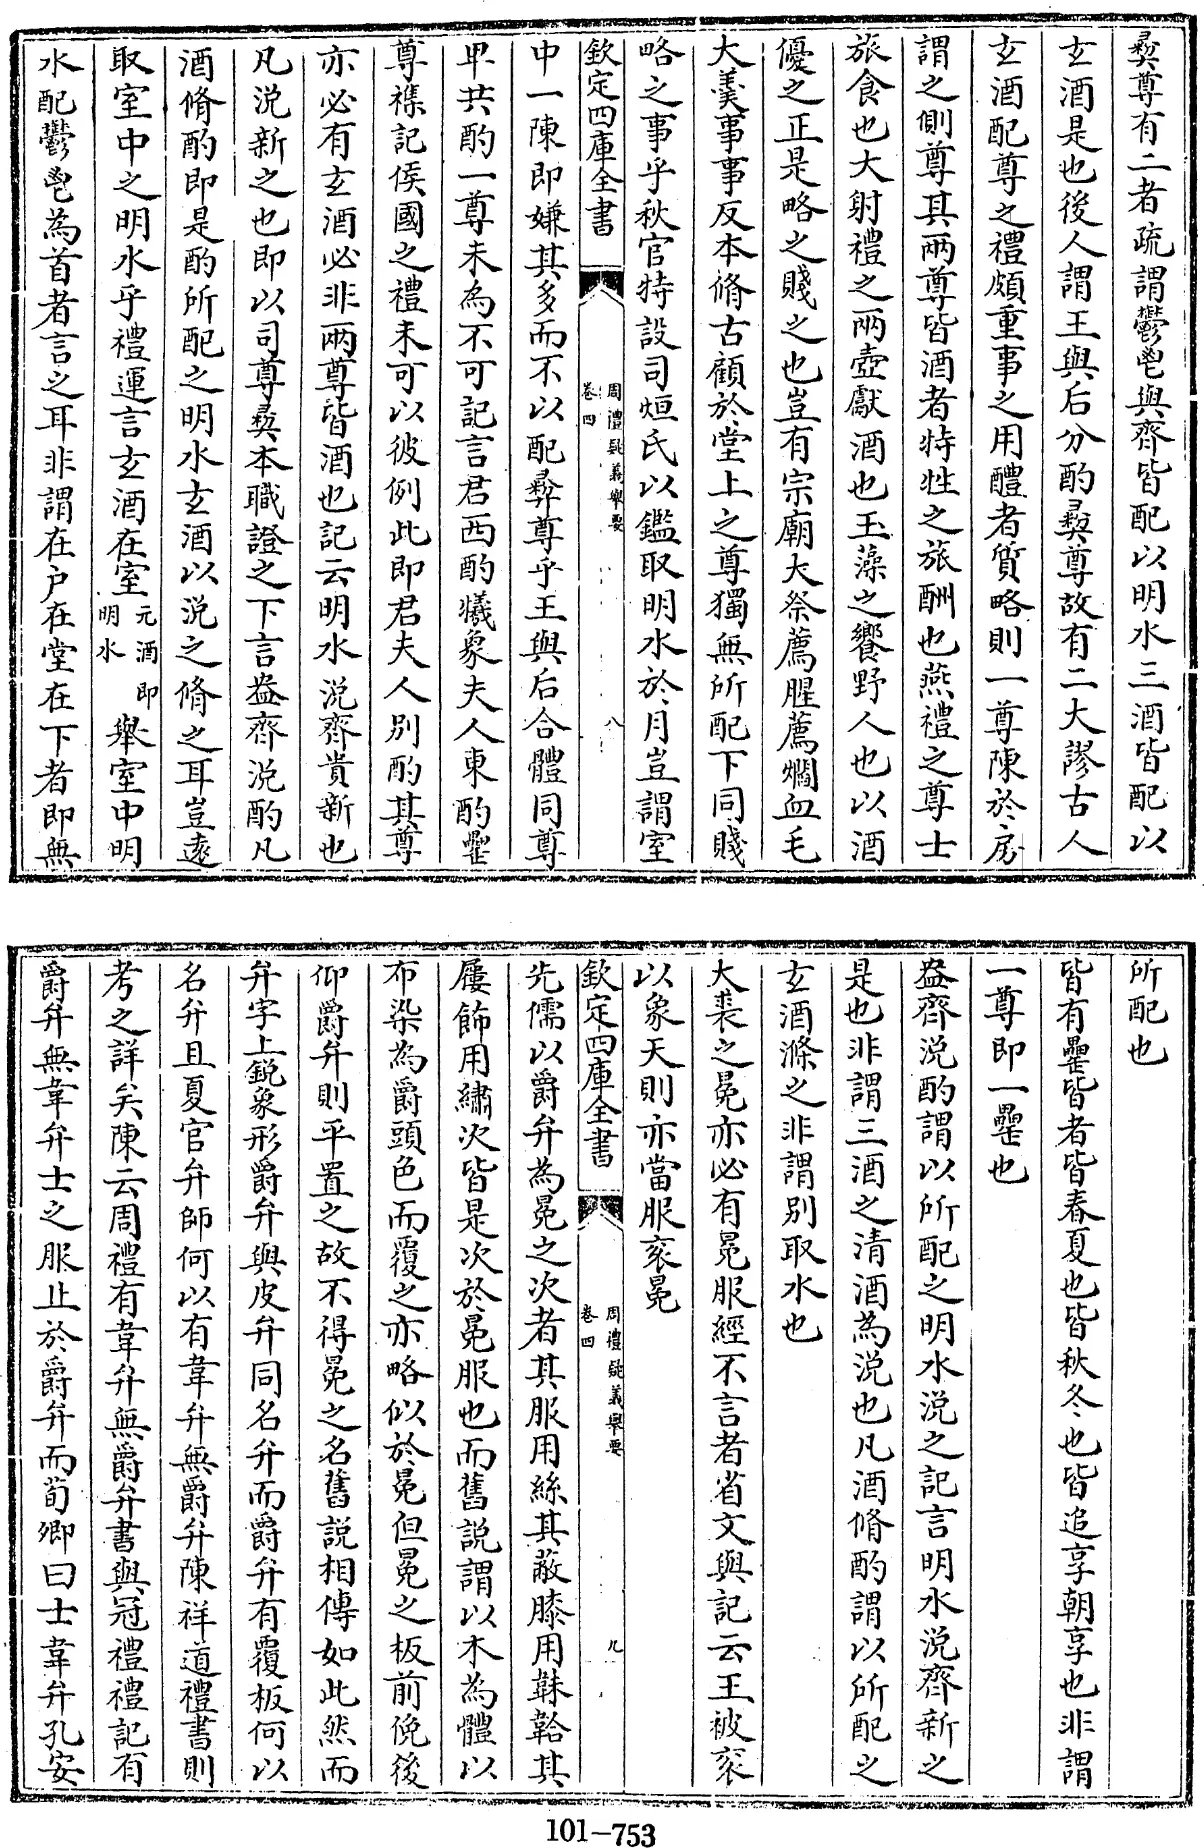 彛尊有二者疏謂鬱鬯與齊皆配以明水三酒皆配以
玄酒是也後人謂王與后分酌彛尊故有二大謬古人
玄酒配尊之禮頗重事之用醴者質略則一尊陳於房
謂之側尊其兩尊皆酒者特牲之旅酬也燕禮之尊士
旅食也大射禮之兩壺獻酒也玉藻之饗野人也以酒
優之正是略之賤之也豈有宗廟大祭薦腥薦爓血毛
大羮事事反本脩古顧於堂上之尊獨無所配下同賤
略之事乎秋官特設司烜氏以鑑取明水於月豈謂室
欽定四庫全書
周禮疑義舉要
卷四
八
中一陳即嫌其多而不以配彛尊乎王與后合體同尊
卑共酌一尊未為不可記言君西酌犧象夫人東酌罍
尊襍記侯國之禮未可以彼例此即君夫人別酌其尊
亦必有玄酒必非兩尊皆酒也記云明水涚齊貴新也
凡涚新之也即以司尊彛本職證之下言盎齊涚酌凡
酒脩酌即是酌所配之明水玄酒以涚之脩之耳豈遠
取室中之明水乎禮運言玄酒在室
元酒即
明水
舉室中明
水配鬱鬯為首者言之耳非謂在户在堂在下者即無
所配也
皆有罍皆者皆春夏也皆秋冬也皆追享朝享也非謂
一尊即一罍也
盎齊涚酌謂以所配之明水涚之記言明水涚齊新之
是也非謂三酒之清酒為涚也凡酒脩酌謂以所配之
玄酒滌之非謂別取水也
大裘之冕亦必有冕服經不言者省文與記云王被衮
以象天則亦當服衮冕
欽定四庫全書
周禮疑義舉要
卷四
九
先儒以爵弁為冕之次者其服用絲其蔽膝用韎韐其
屨飾用繡次皆是次於冕服也而舊説謂以木為體以
布染為爵頭色而覆之亦略似於冕但冕之板前俛後
仰爵弁則平置之故不得冕之名舊説相傳如此然而
弁字上鋭象形爵弁與皮弁同名弁而爵弁有覆板何以
名弁且夏官弁師何以有韋弁無爵弁陳祥道禮書則
考之詳矣陳云周禮有韋弁無爵弁書與冠禮禮記有
爵弁無韋弁士之服止於爵弁而荀卿曰士韋弁孔安
101-753